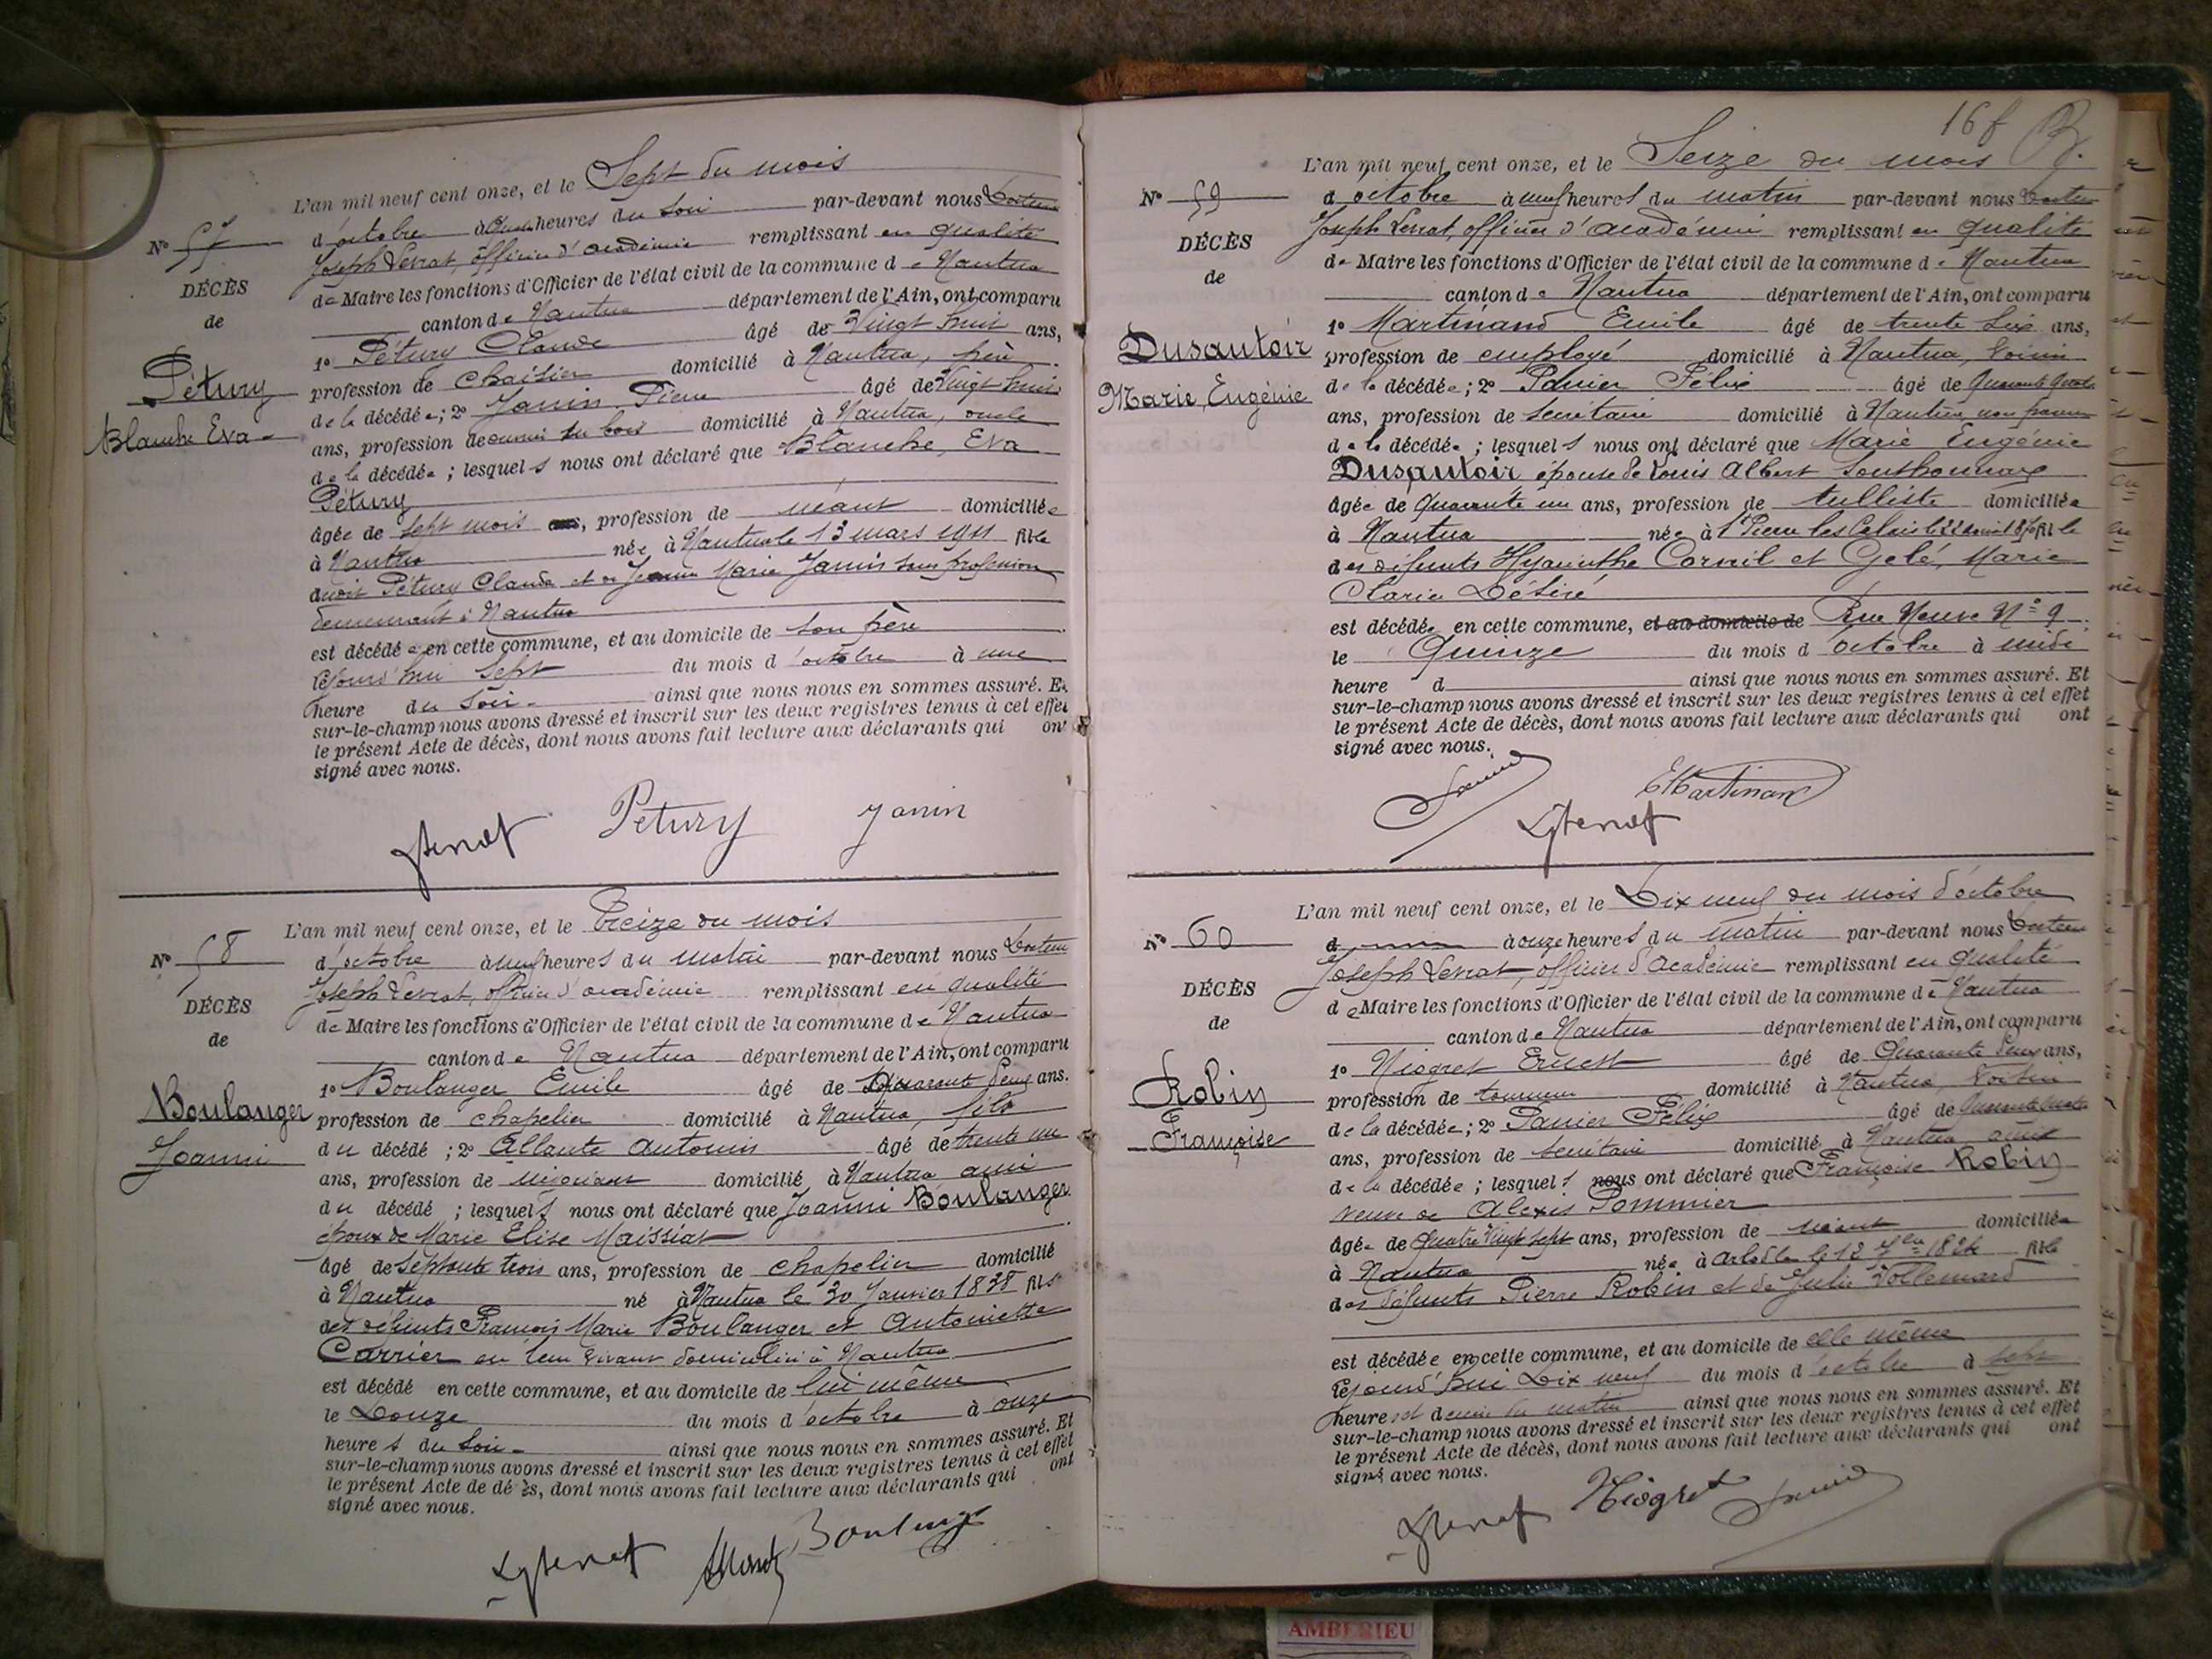 L'an mil neuf cent onze, et le Sept du mois
No 57
d'octobre à heures du soir par-devant nous Docteur
Joseph Levrat, officier d'académie remplissant en qualité
de Maire les fonctions d'Officier de l'état civil de la commune de Nantua
canton de Nantua département de l'Ain, ont comparu
DÉCÈS
de
Pétury
Blanche Eva
1o Pétury Claude âgé de Vingt huit ans,
profession de chaisier domicilié à Nantua, père
de la décédée; 2o Janin Pierre âgé de Vingt huit
ans, profession de ouvrier sur bois domicilié à Nantua, oncle
de la décédée; lesquels nous ont déclaré que Blanche, Eva
Pétury
âgée de sept mois ans, profession de néant domiciliée
à Nantua née à Nantua le 13 mars 1911 fille
dudit Pétury Claude et de Jeanne Marie Janin sans profession
demeurant à Nantua
est décédée en cette commune, et au domicile de son père
cejourd'hui Sept du mois d'octobre à une
heure du soir ainsi que nous nous en sommes assuré. Et
sur-le-champ nous avons dressé et inscrit sur les deux registres tenus à cet effet
le présent Acte de décès, dont nous avons fait lecture aux déclarants qui ont
signé avec nous.
Petury Janin
L'an mil neuf cent onze, et le Treize du mois
No 58
d'octobre à neuf heures du matin par-devant nous Docteur
Joseph Levrat, officier d'académie remplissant en qualité
de Maire les fonctions d'Officier de l'état civil de la commune de Nantua
canton de Nantua département de l'Ain, ont comparu
DÉCÈS
de
Boulanger
Joanni
1o Boulanger Emile âgé de quarante deux ans.
profession de chapelier domicilié à Nantua, fils
du décédé; 2o Allante Antonin âgé de trente un
ans, profession de négociant domicilié à Nantua ami
du décédé; lesquels nous ont déclaré que Joanni Boulanger
époux de Marie Elise Maissiat
âgé de Septante trois ans, profession de chapelier domicilié
à Nantua né à Nantua le 30 Janvier 1838 fils
des défunts François Marie Boulanger et Antoinette
Carrier en leur vivant domiciliés à Nantua
est décédé en cette commune, et au domicile de lui même
le Douze du mois d'octobre à onze
heures du soir ainsi que nous nous en sommes assuré. Et
sur-le-champ nous avons dressé et inscrit sur les deux registres tenus à cet effet
le présent Acte de décès, dont nous avons fait lecture aux déclarants qui ont
signé avec nous.
Boulanger
16 f
L'an mil neuf cent onze, et le Seize du mois
No 59
d'octobre à neuf heures du matin par-devant nous Docteur
Joseph Levrat, officier d'académie remplissant en qualité
de Maire les fonctions d'Officier de l'état civil de la commune de Nantua
canton de Nantua département de l'Ain, ont comparu
DÉCÈS
de
Dusautoir
Marie, Eugénie
1o Martinand Emile âgé de trente six ans,
profession de employé domicilié à Nantua, voisin
de la décédée; 2o Panier Félix âgé de Quarante quatre
ans, profession de secrétaire domicilié à Nantua, non parent
de la décédée; lesquels nous ont déclaré que Marie Eugénie
Dusautoir épouse de Louis Albert
âgée de Quarante un ans, profession de tulliste domiciliée
à Nantua née à St Pierre les Calais le 22 1870 fille
des défunts Hyacinthe Corneil et Gelé, Marie
Claire Désiré
est décédée en cette commune, et au domicile de Rue Neuve No 9
le Quinze du mois d'octobre à midi
heure d ainsi que nous nous en sommes assuré. Et
sur-le-champ nous avons dressé et inscrit sur les deux registres tenus à cet effet
le présent Acte de décès, dont nous avons fait lecture aux déclarants qui ont
signé avec nous.
EMartinand
L'an mil neuf cent onze, et le Dix neuf du mois d'octobre
No 60
d à onze heures du matin par-devant nous Docteur
Joseph Levrat, officier d'Académie remplissant en qualité
de Maire les fonctions d'Officier de l'état civil de la commune de Nantua
canton de Nantua département de l'Ain, ont comparu
DÉCÈS
de
Robin
Françoise
1o Niogret Ernest âgé de Quarante deux ans,
profession de tourneur domicilié à Nantua, Voisin
de la décédée; 2o Panier Félix âgé de Quarante quatre
ans, profession de secrétaire domicilié à Nantua amie
de la décédée; lesquels nous ont déclaré que Françoise Robin
veuve de Alexis Pommier
âgée de Quatre vingt sept ans, profession de néant domiciliée
à Nantua née à Arlod le 12 1824 fille
des défunts Pierre Robin et de Julie Vollemard
est décédée en cette commune, et au domicile de elle même
cejourd'hui Dix neuf du mois d'octobre à sept
heures et demie du matin ainsi que nous nous en sommes assuré. Et
sur-le-champ nous avons dressé et inscrit sur les deux registres tenus à cet effet
le présent Acte de décès, dont nous avons fait lecture aux déclarants qui ont
signé avec nous.
Niogret
AMBERIEU